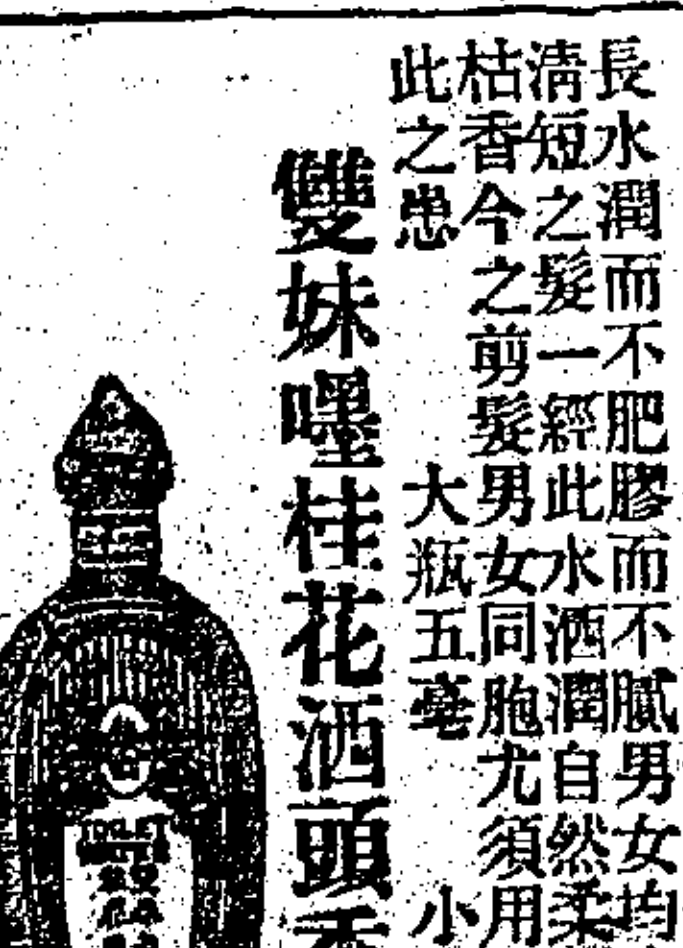 長水潤而不肥膠而不膩男女均
淸短之髮一經此水洒潤自然柔
枯香今之剪髮男女同胞尤須用
此之患 大瓶五毫 小
雙妹嚜桂花洒頭香
TOILET